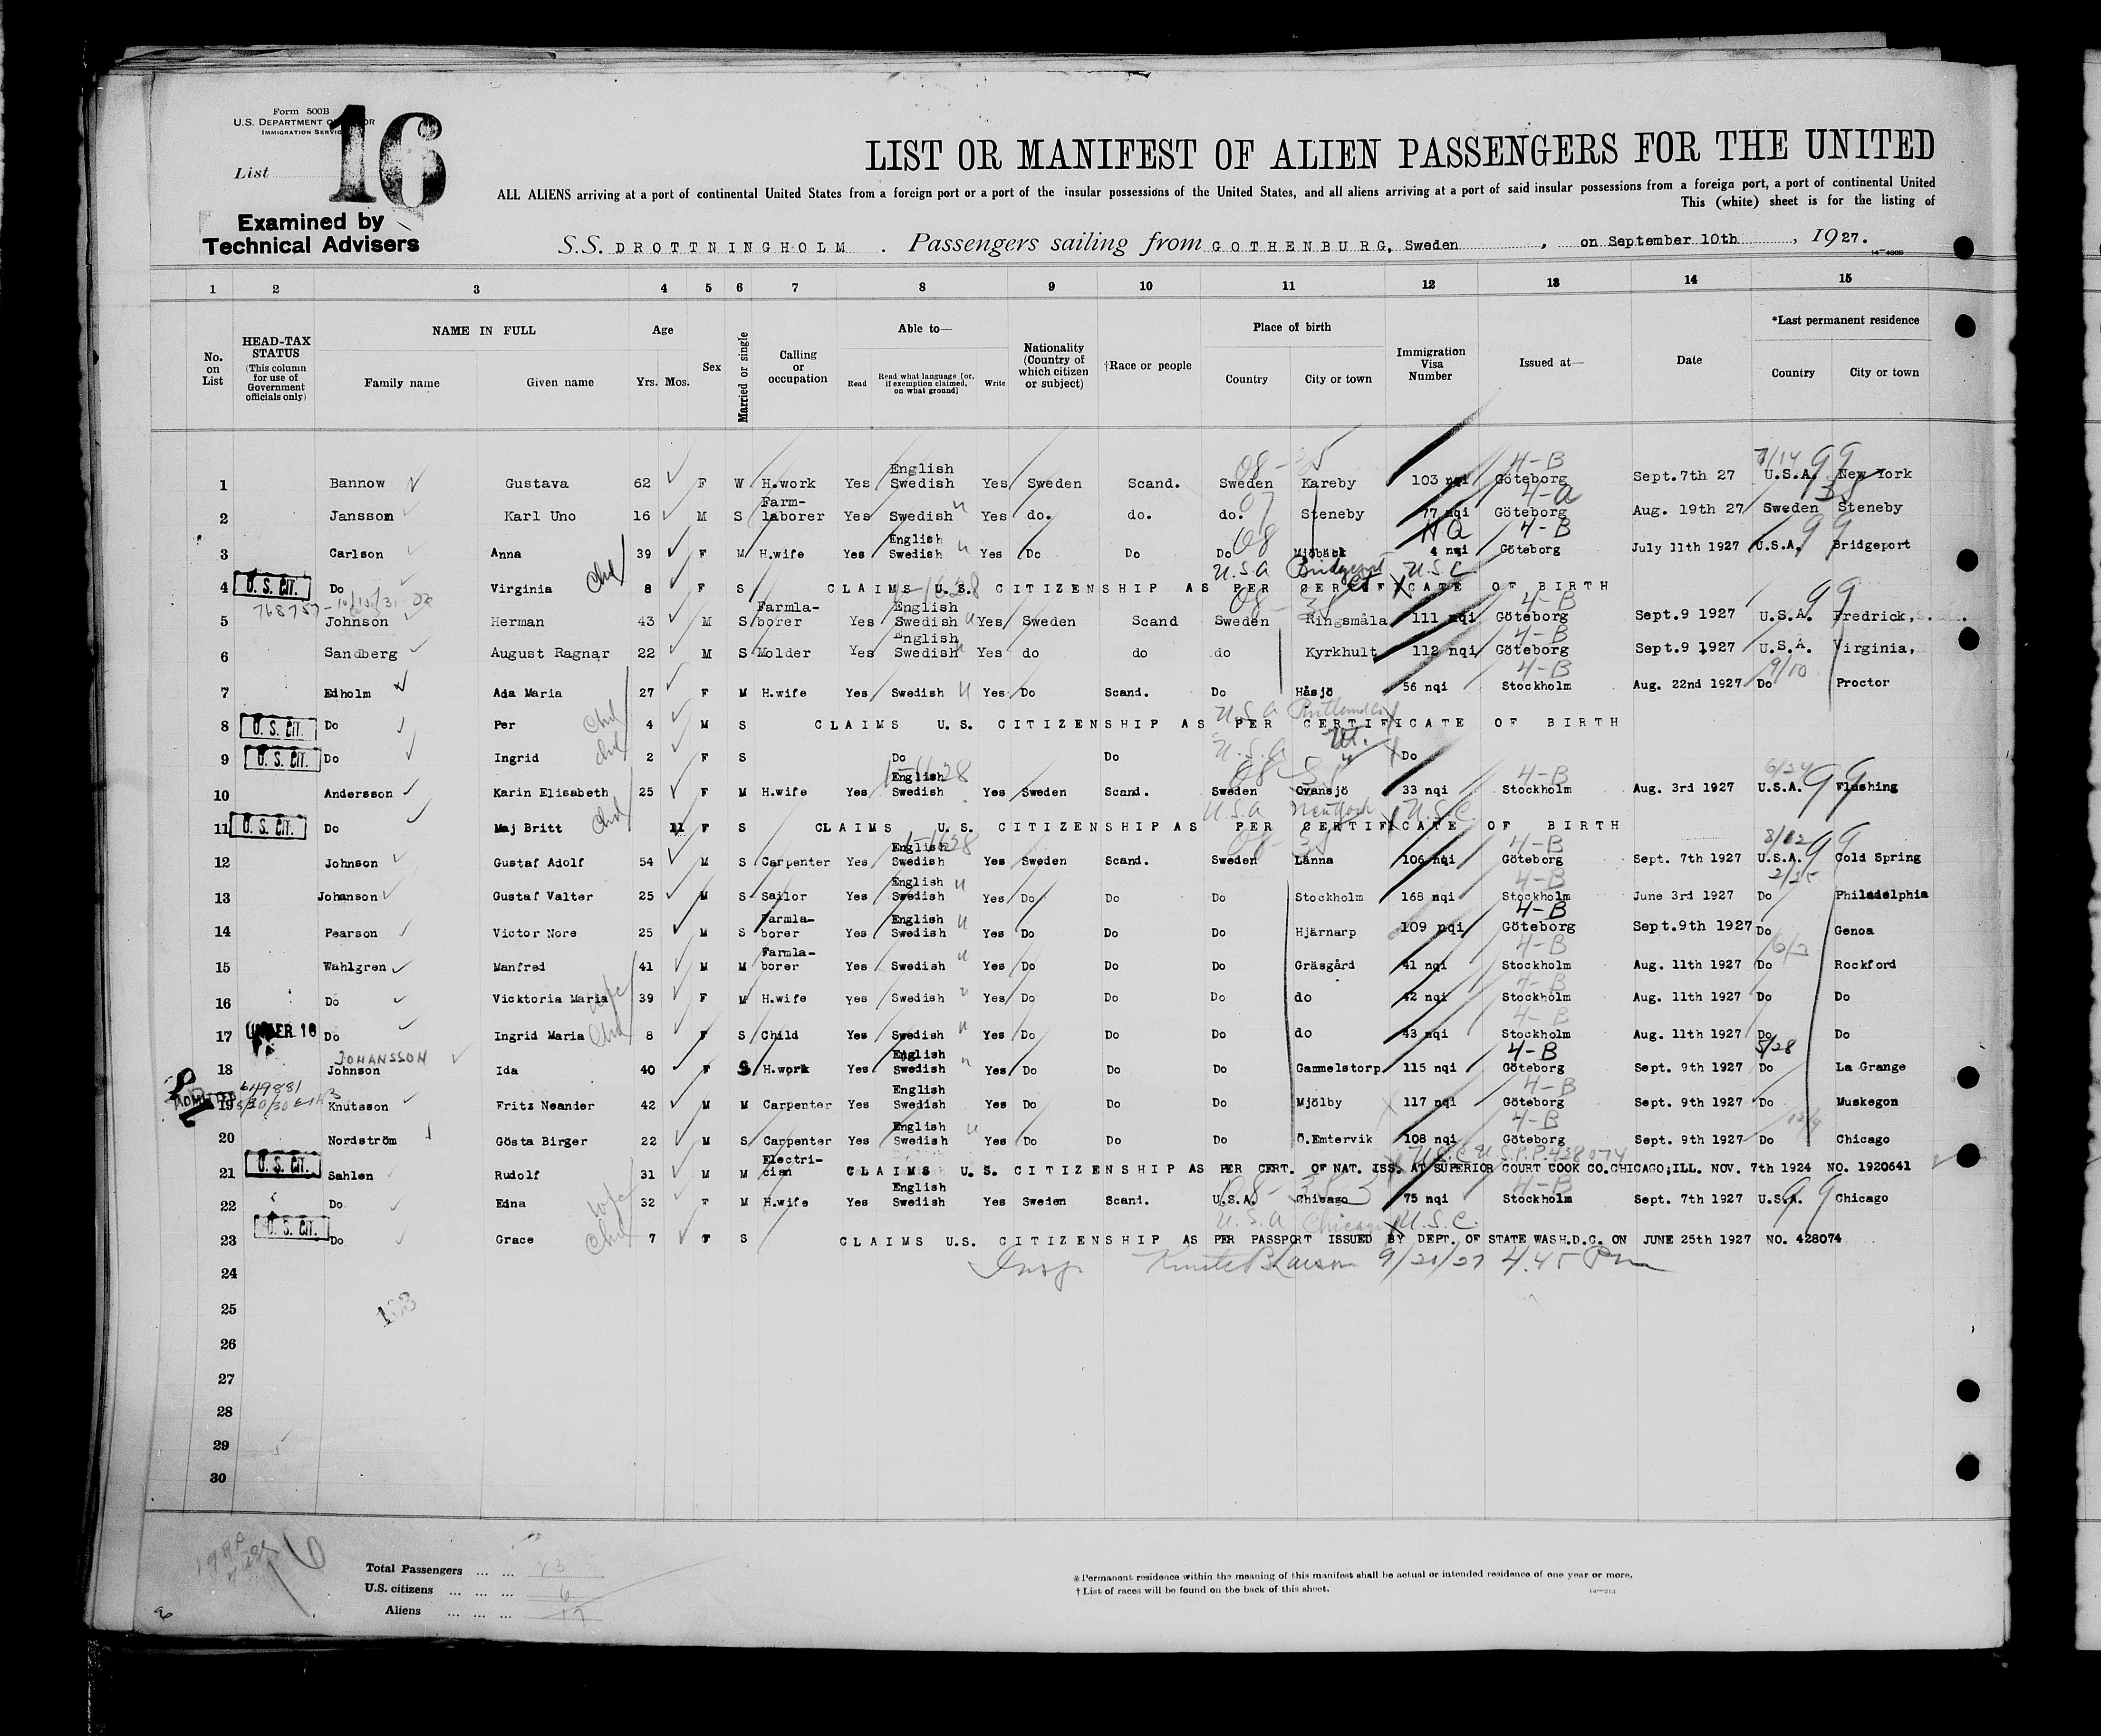 Form 500B
U.S. DEPARTMENT OF LABOR
IMMIGRATION SERVICE
List 16
Examined by
Technical Advisers
LIST OR MANIFEST OF ALIEN PASSENGERS FOR THE UNITED
ALL ALIENS arriving at a port of continental United States from a foreign port or a port of the insular possessions of the United States, and all aliens arriving at a port of said insular possessions from a foreign port, a port of continental United
This (white) sheet is for the listing of
S.S. DROTTNINGHOLM . Passengers sailing from GOTHENBURG, Sweden , on September 10th , 1927.
1 2 3 4 5 6 7 8 9 10 11 12 13 14 15
No. on List
HEAD-TAX STATUS (This column for use of Government officials only)
NAME IN FULL
Family name Given name
Age
Yrs. Mos.
Sex
Married or single
Calling or occupation
Able to—
Read Read what language [or, if exemption claimed, on what ground] Write
Nationality (Country of which citizen or subject)
†Race or people
Place of birth
Country City or town
Immigration Visa Number
Issued at—
Date
*Last permanent residence
Country City or town
1 Bannow Gustava 62 F W H.work Yes English Swedish Yes Sweden Scand. Sweden Kareby 103 nqi 4-B Göteborg Sept.7th 27 U.S.A. New York
2 Jansson Karl Uno 16 M S Farm-laborer Yes Swedish Yes do. do. do. Steneby 77 nqi 4-a Göteborg Aug. 19th 27 Sweden Steneby
3 Carlson Anna 39 F M H.wife Yes English Swedish Yes Do Do Do Mjöbäck 4 nqi NQ 4-B Göteborg July 11th 1927 U.S.A. Bridgeport
U.S.A Bridgeport U.S.C
4 U.S. CIT. Do Virginia Chd 8 F S CLAIMS U.S. CITIZENSHIP AS PER CERTIFICATE OF BIRTH
5 Johnson Herman 43 M S Farmla-borer Yes English Swedish Yes Sweden Scand Sweden Ringsmåla 111 nqi 4-B Göteborg Sept.9 1927 U.S.A. Fredrick,
6 Sandberg August Ragnar 22 M S Molder Yes English Swedish Yes do do do Kyrkhult 112 nqi 4-B Göteborg Sept.9 1927 U.S.A. Virginia,
7 Edholm Ada Maria 27 F M H.wife Yes Swedish Yes Do Scand. Do Håsjö 56 nqi 4-B Stockholm Aug. 22nd 1927 9/10 Do Proctor
8 U.S. CIT. Do Per Chd 4 M S CLAIMS U.S. CITIZENSHIP AS PER CERTIFICATE OF BIRTH
9 U.S. CIT. Do Ingrid chd 2 F S Do Do U.S.A Do
10 Andersson Karin Elisabeth 25 F M H.wife Yes English Swedish Yes Sweden Scand. Sweden Ovansjö 33 nqi 4-B Stockholm Aug. 3rd 1927 U.S.A. Flushing
U.S.A New York U.S.C.
11 U.S. CIT. Do Maj Britt Chd 11 F S CLAIMS U.S. CITIZENSHIP AS PER CERTIFICATE OF BIRTH
12 Johnson Gustaf Adolf 54 M S Carpenter Yes English Swedish Yes Sweden Scand. Sweden Länna 106 nqi 4-B Göteborg Sept. 7th 1927 U.S.A. Cold Spring
13 Johanson Gustaf Valter 25 M S Sailor Yes English Swedish Yes Do Do Do Stockholm 168 nqi 4-B Stockholm June 3rd 1927 Do Philadelphia
14 Pearson Victor Nore 25 M S Farmla-borer Yes English Swedish Yes Do Do Do Hjärnarp 109 nqi 4-B Göteborg Sept.9th 1927 Do Genoa
15 Wahlgren Manfred 41 M M Farmla-borer Yes Swedish Yes Do Do Do Gräsgård 41 nqi 4-B Stockholm Aug. 11th 1927 Do Rockford
16 Do Vicktoria Maria wife 39 F M H.wife yes Swedish Yes Do Do Do do 42 nqi 4-B Stockholm Aug. 11th 1927 Do Do
17 UNDER 16 Do Ingrid Maria Chd 8 F S Child Yes Swedish Yes Do Do Do do 43 nqi 4-B Stockholm Aug. 11th 1927 Do Do
JOHANSSON
18 Johnson Ida 40 F S H.work Yes English Swedish Yes Do Do Do Gammelstorp 115 nqi 4-B Göteborg Sept. 9th 1927 5/28 Do La Grange
ADMITTED 649881
19 Knutsson Fritz Neander 42 M M Carpenter Yes English Swedish Yes Do Do Do Mjölby 117 nqi 4-B Göteborg Sept. 9th 1927 Do Muskegon
20 Nordström Gösta Birger 22 M S Carpenter Yes English Swedish Yes Do Do Do Ö.Emtervik 108 nqi 4-B Göteborg Sept. 9th 1927 Do Chicago
21 U.S. CIT. Sahlen Rudolf 31 M M Electri-cian CLAIMS U.S. CITIZENSHIP AS PER CERT. OF NAT. ISS. AT SUPERIOR COURT COOK CO.CHICAGO;ILL. NOV. 7th 1924 NO. 1920641
22 Do Edna wife 32 F M H.wife Yes English Swedish Yes Sweden Scand. U.S.A. Chicago 75 nqi 4-B Stockholm Sept. 7th 1927 U.S.A. Chicago
U.S.A Chicago U.S.C.
23 U.S. CIT. Do Grace Chd 7 F S CLAIMS U.S. CITIZENSHIP AS PER PASSPORT ISSUED BY DEPT. OF STATE WASH.D.C. ON JUNE 25th 1927 NO. 428074
24 Insp 9/20/27 4.45 Pm
25
26
27
28
29
30
Total Passengers ... ... 23
U.S. citizens ... ... ... 6
Aliens ... ... ... 17
*Permanent residence within the meaning of this manifest shall be actual or intended residence of one year or more.
†List of races will be found on the back of this sheet.